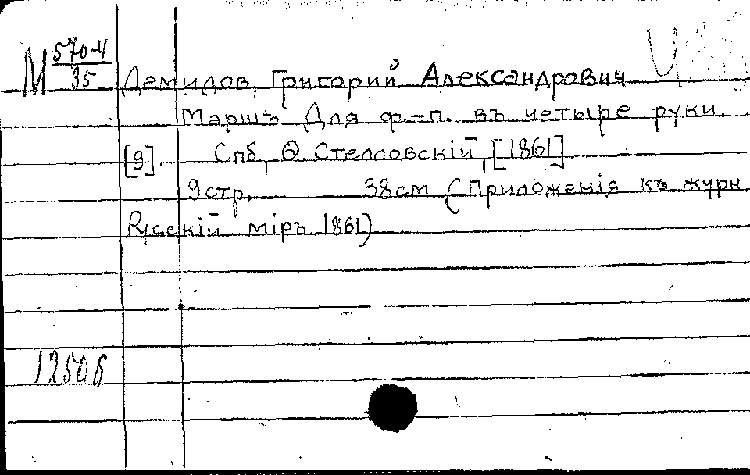 М 570-4
35
Демидов, Григорий Александрович
Маршъ Для ф-п. въ четыре руки.
[9]. Спб, Ѳ. Стелсовскій, [1861]
9 стр. 38 см (Приложенія къ журн
Русскій міръ 1861)